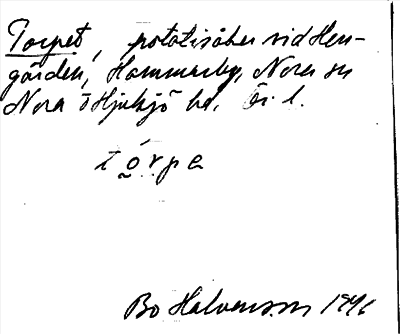 Torpet, potatisåker vid Hen-
gården, Hammarby, Nora sn
Nora o Hjulsjö hd. Ör. l.
tórpe
Bo Halvarsson 1946